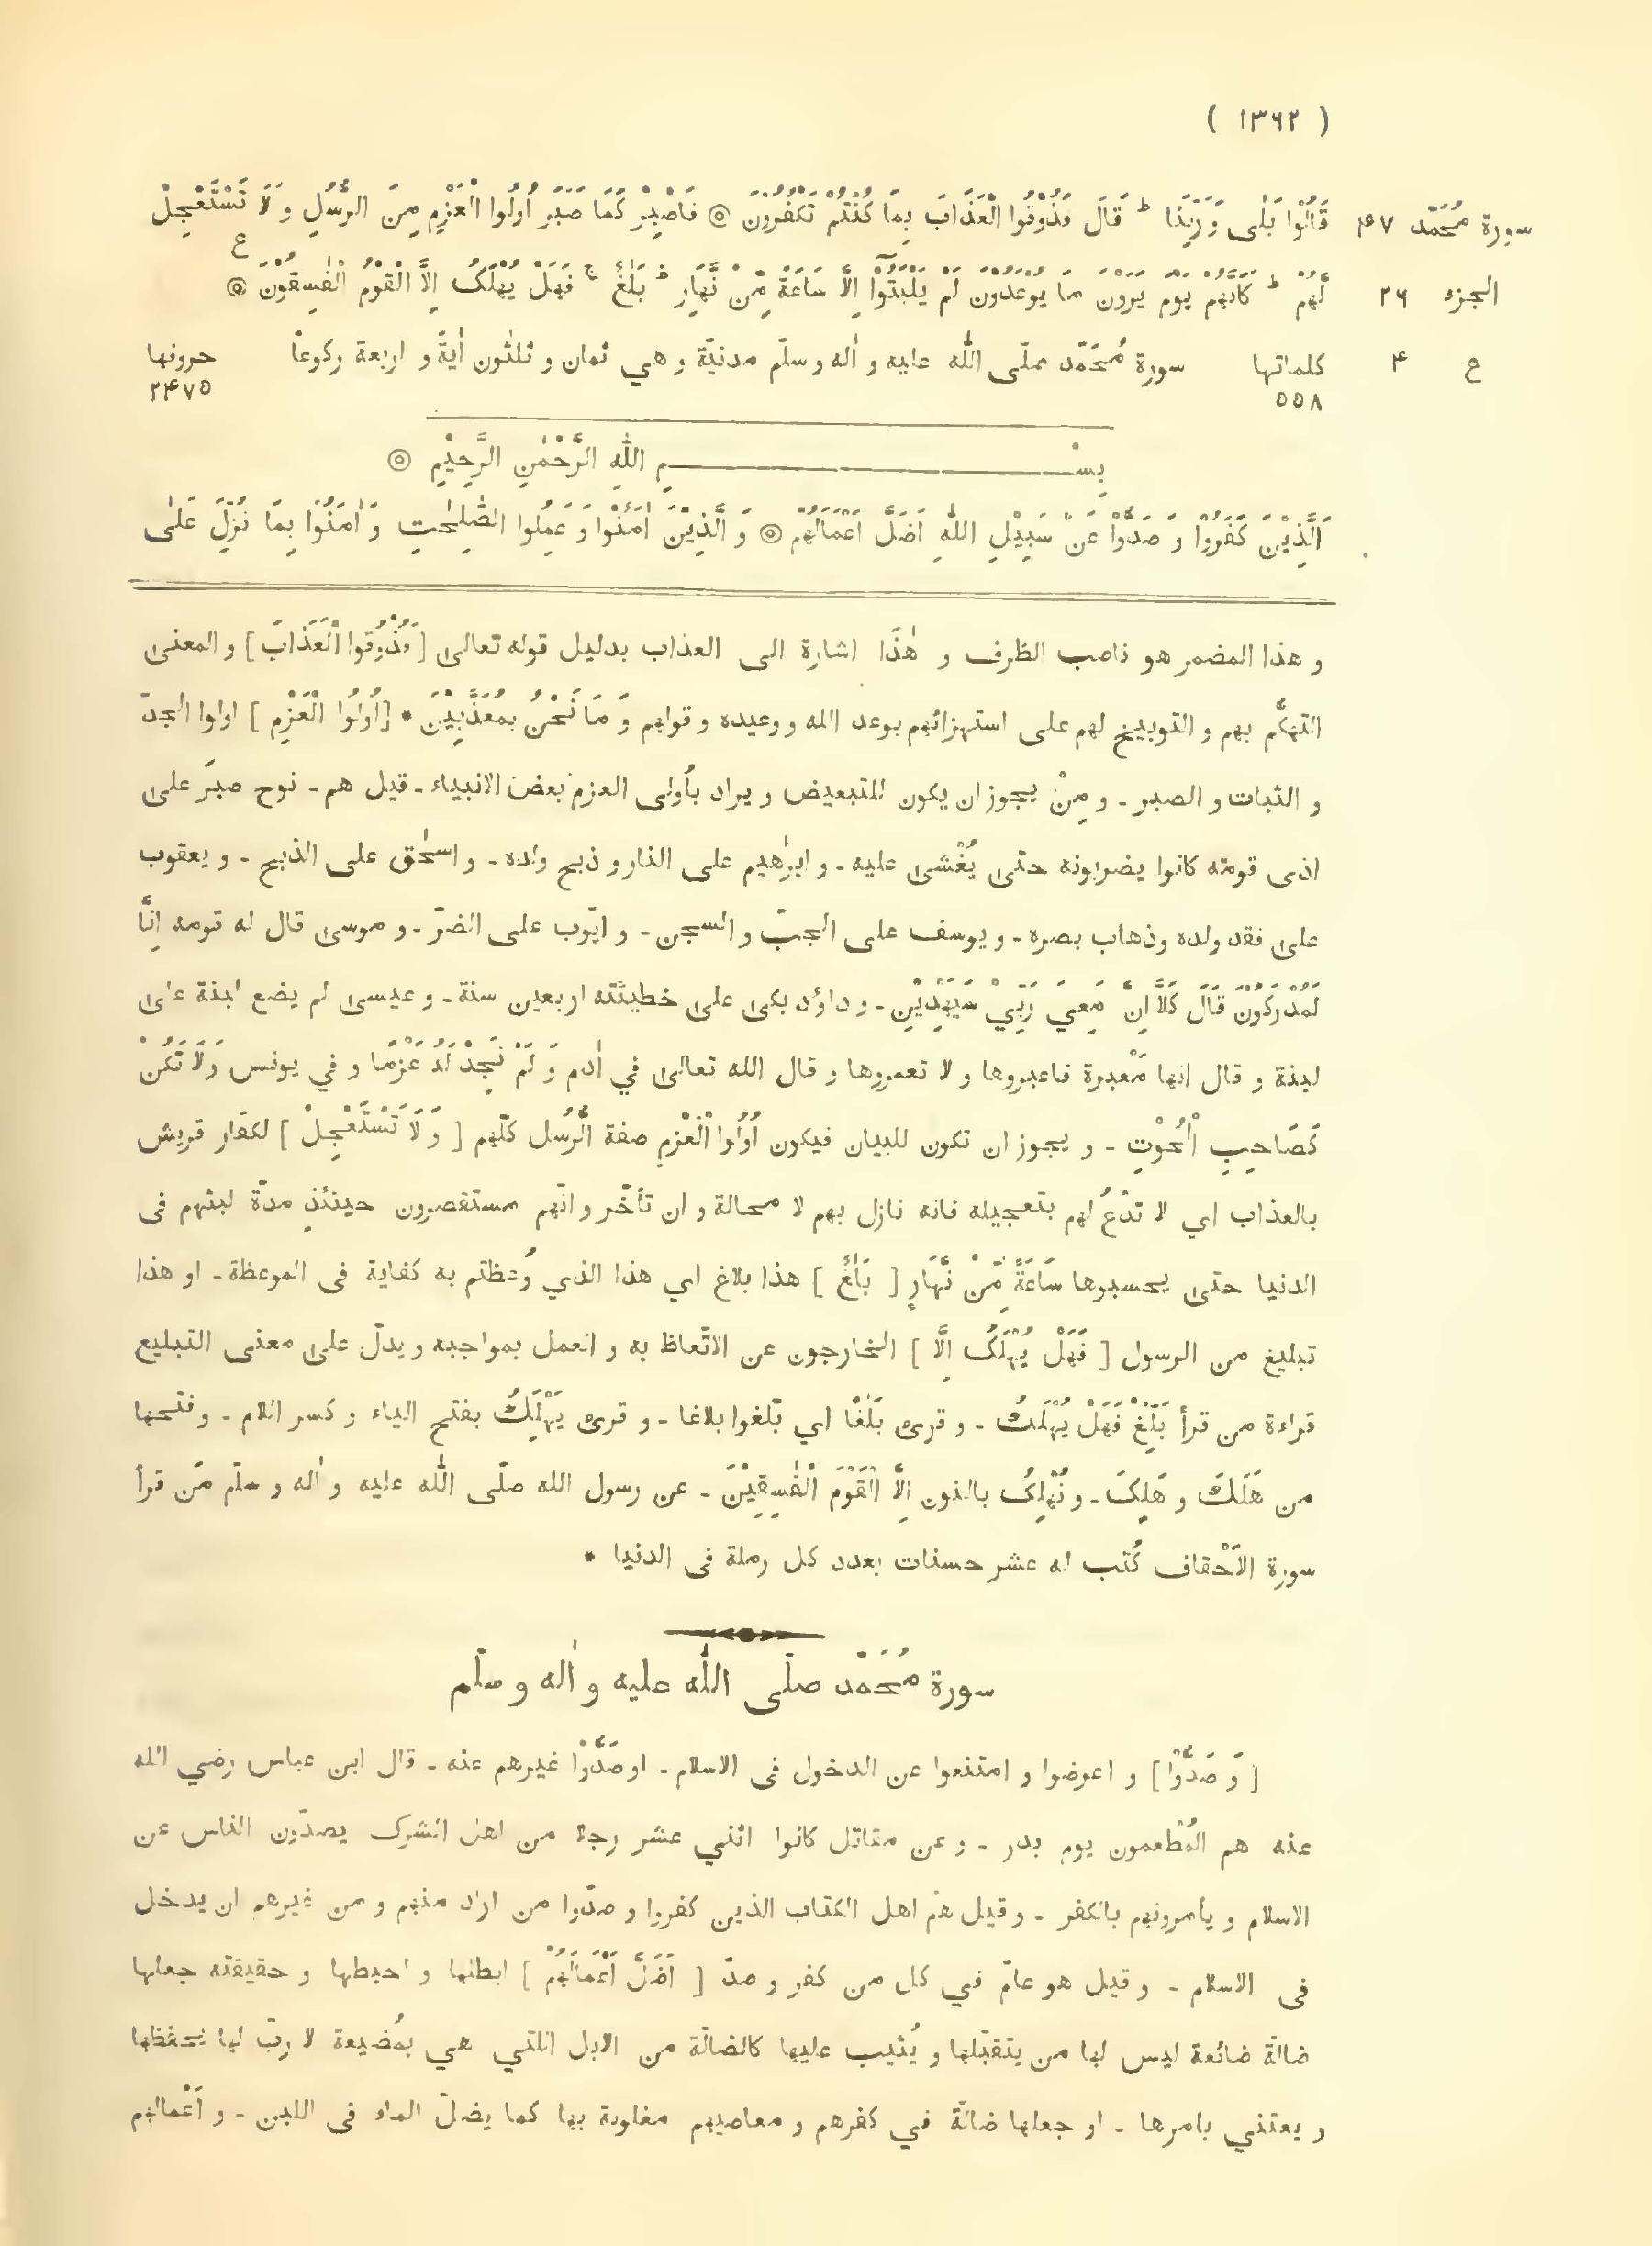 ( ١٣٦٢ )
سورة مُحَمّد ٤٧ قَالُوْا بَلٰى وَ رَبِّنَا ط قَالَ فَذُوْقُوا الْعَذَابَ بِمَا كُنْتُمْ تَكْفُرُوْنَ ۞ فَاصْبِرْ كَمَا صَبَرَ اُولُوا الْعَزْمِ مِنَ الرُّسُلِ وَ لَا تَسْتَعْجِلْ
ع
الجزء ٢٦ لَّهُمْ ط كَاَنَّهُمْ يَوْمَ يَرَوْنَ مَا يُوْعَدُوْنَ لَمْ يَلْبَثُوْٓا اِلَّا سَاعَةً مِّنْ نَّهَارٍ ط بَلٰغٌ ج فَهَلْ يُهْلَكُ اِلَّا الْقَوْمُ الْفٰسِقُوْنَ ۞
ع ٤ كلماتها سورة مُحَمّد صلّى اللّٰه عليه و اٰله و سلّم مدنيّة و هي ثمان و ثلٰثون اٰيةً و اربعة ركوعاً حروفها
٥٥٨ ٢٤٧٥
بِسْمِ اللّٰهِ الرَّحْمٰنِ الرَّحِيْمِ ۞
اَلَّذِيْنَ كَفَرُوْا وَ صَدُّوْا عَنْ سَبِيْلِ اللّٰهِ اَضَلَّ اَعْمَالَهُمْ ۞ وَ الَّذِيْنَ اٰمَنُوْا وَ عَمِلُوا الصّٰلِحٰتِ وَ اٰمَنُوْا بِمَا نُزِّلَ عَلٰى
و هذا المضمر هو ناصب الظرف و هٰذَا اشارة الى العذاب بدليل قوله تعالى [ فَذُوْقُوا الْعَذَابَ ] و المعنى
التهكّم بهم و التوبيخ لهم على استهزائهم بوعد الله و وعيده و قولهم وَ مَا نَحْنُ بِمُعَذَّبِيْنَ * [ اُولُوا الْعَزْمِ ] اولوا الجدّ
و الثبات و الصبر ـ و مِنْ يجوز ان يكون للتبعيض و يراد بأولى العزم بعض الانبياء ـ قيل هم ـ نوح صبَر على
اذى قومه كانوا يضربونه حتى يُغْشى عليه ـ و ابرٰهيم على النار و ذبح ولده ـ و اسحٰق على الذبح ـ و يعقوب
على فقد ولده و ذهاب بصره ـ و يوسف على الجبّ و السجن ـ و ايّوب على الضرّ ـ و موسى قال له قومه اِنَّا
لَمُدْرَكُوْنَ قَالَ كَلَّا اِنَّ مَعِيَ رَبِّيْ سَيَهْدِيْنِ ـ و داوٗد بكى على خطيئته اربعين سنة ـ و عيسى لم يضع لبنة على
لبنة و قال انها مَعْبرة فاعبروها و لا تعمروها و قال الله تعالى في اٰدم وَ لَمْ نَجِدْ لَهُ عَزْمًا و في يونس وَ لَا تَكُنْ
كَصَاحِبِ الْحُوْتِ ـ و يجوز ان تكون للبيان فيكون اُولُوا الْعَزْمِ صفة الرُّسُل كلّهم [ وَ لَا تَسْتَعْجِلْ ] لكفّار قريش
بالعذاب اي لا تدْعُ لهم بتعجيله فانه نازل بهم لا محالة و ان تأخّر و انّهم مستقصرون حينئذٍ مدّة لبثهم فى
الدنيا حتى يحسبوها سَاعَةً مِّنْ نَّهَارٍ [ بَلٰغٌ ] هذا بلاغ اي هذا الذي وُعظتم به كفاية فى الموعظة ـ او هذا
تبليغ من الرسول [ فَهَلْ يُهْلَكُ اِلَّا ] الخارجون عن الاتّعاظ به و العمل بمواجبه و يدلّ على معنى التبليغ
قراءة من قرأ بَلِّغْ فَهَلْ يُهْلَكُ ـ و قرى بَلٰغًا اي بلّغوا بلاغا ـ و قرى يَهْلِكُ بفتح الياء و كسر اللام ـ و فتحها
من هَلَكَ و هَلِكَ ـ و نُهْلِكُ بالنون اِلَّا الْقَوْمَ الْفٰسِقِيْنَ ـ عن رسول الله صلّى اللّٰه عليه و اٰله و سلّم مَن قرأ
سورة الْاَحْقاف كُتب له عشر حسنات بعدد كل رملة فى الدنيا *
سورة مُحَمّد صلّى اللّٰه عليه و اٰله و سلّم
[ وَ صَدُّوْا ] و اعرضوا و امتنعوا عن الدخول فى الاسلام ـ او صَدُّوْا غيرهم عنه ـ قال ابن عباس رضي الله
عنه هم المُطْعمون يوم بدر ـ و عن مقاتل كانوا اثني عشر رجلا من اهل الشرك يصدّون الناس عن
الاسلام و يأمرونهم بالكفر ـ و قيل هم اهل الكتاب الذين كفروا و صدّوا من اراد منهم و من غيرهم ان يدخل
فى الاسلام ـ و قيل هو عامّ في كل من كفر و صدّ [ اَضَلَّ اَعْمَالَهُمْ ] ابطلها و احبطها و حقيقته جعلها
ضالّة ضائعة ليس لها من يتقبّلها و يُثيب عليها كالضالّة من الابل اللتي هي بمُضيعة لا ربّ لها يحفظها
و يعتني بامرها ـ او جعلها ضالّة في كفرهم و معاصيهم مغلوبة بها كما يضلّ الماء فى اللبن ـ و اَعْمالهم